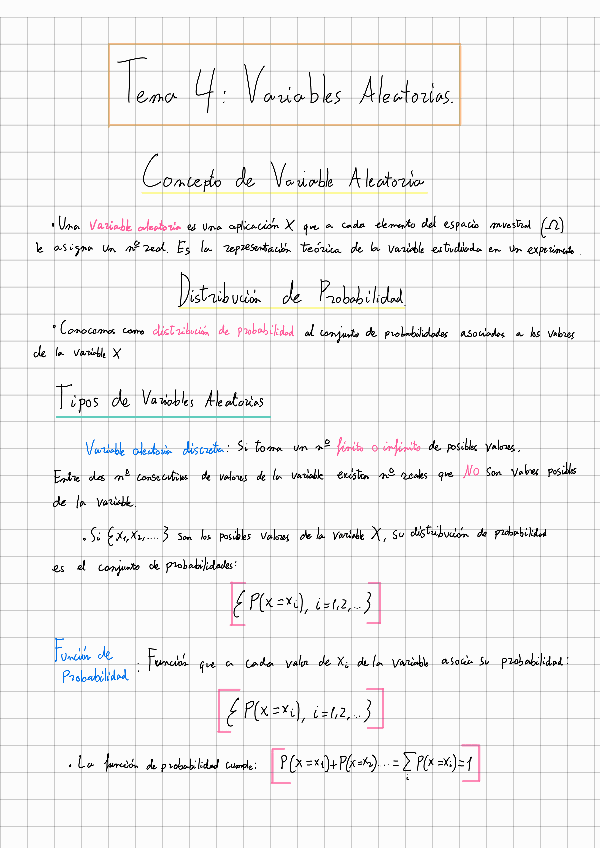 Tema 4: Variables Aleatorias.
Concepto de Variable Aleatoria
• Una variable aleatoria es una aplicación X que a cada elemento del espacio muestral (Ω)
le asigna un nº real. Es la representación teórica de la variable estudiada en un experimento.
Distribución de Probabilidad
• Conocemos como distribución de probabilidad al conjunto de probabilidades asociadas a los valores
de la variable X
Tipos de Variables Aleatorias
Variable aleatoria discreta: Si toma un nº finito o infinito de posibles valores.
Entre dos nº consecutivos de valores de la variable existen nº reales que NO son valores posibles
de la variable.
• Si {x₁, x₂, ....} son los posibles valores de la variable X, su distribución de probabilidad
es el conjunto de probabilidades:
{P(X=xᵢ), i=1,2,...}
Función de
Probabilidad : Función que a cada valor de xᵢ de la variable asocia su probabilidad:
{P(X=xᵢ), i=1,2,...}
• La función de probabilidad cumple: P(X=x₁)+P(X=x₂)...=∑ᵢ P(X=xᵢ)=1